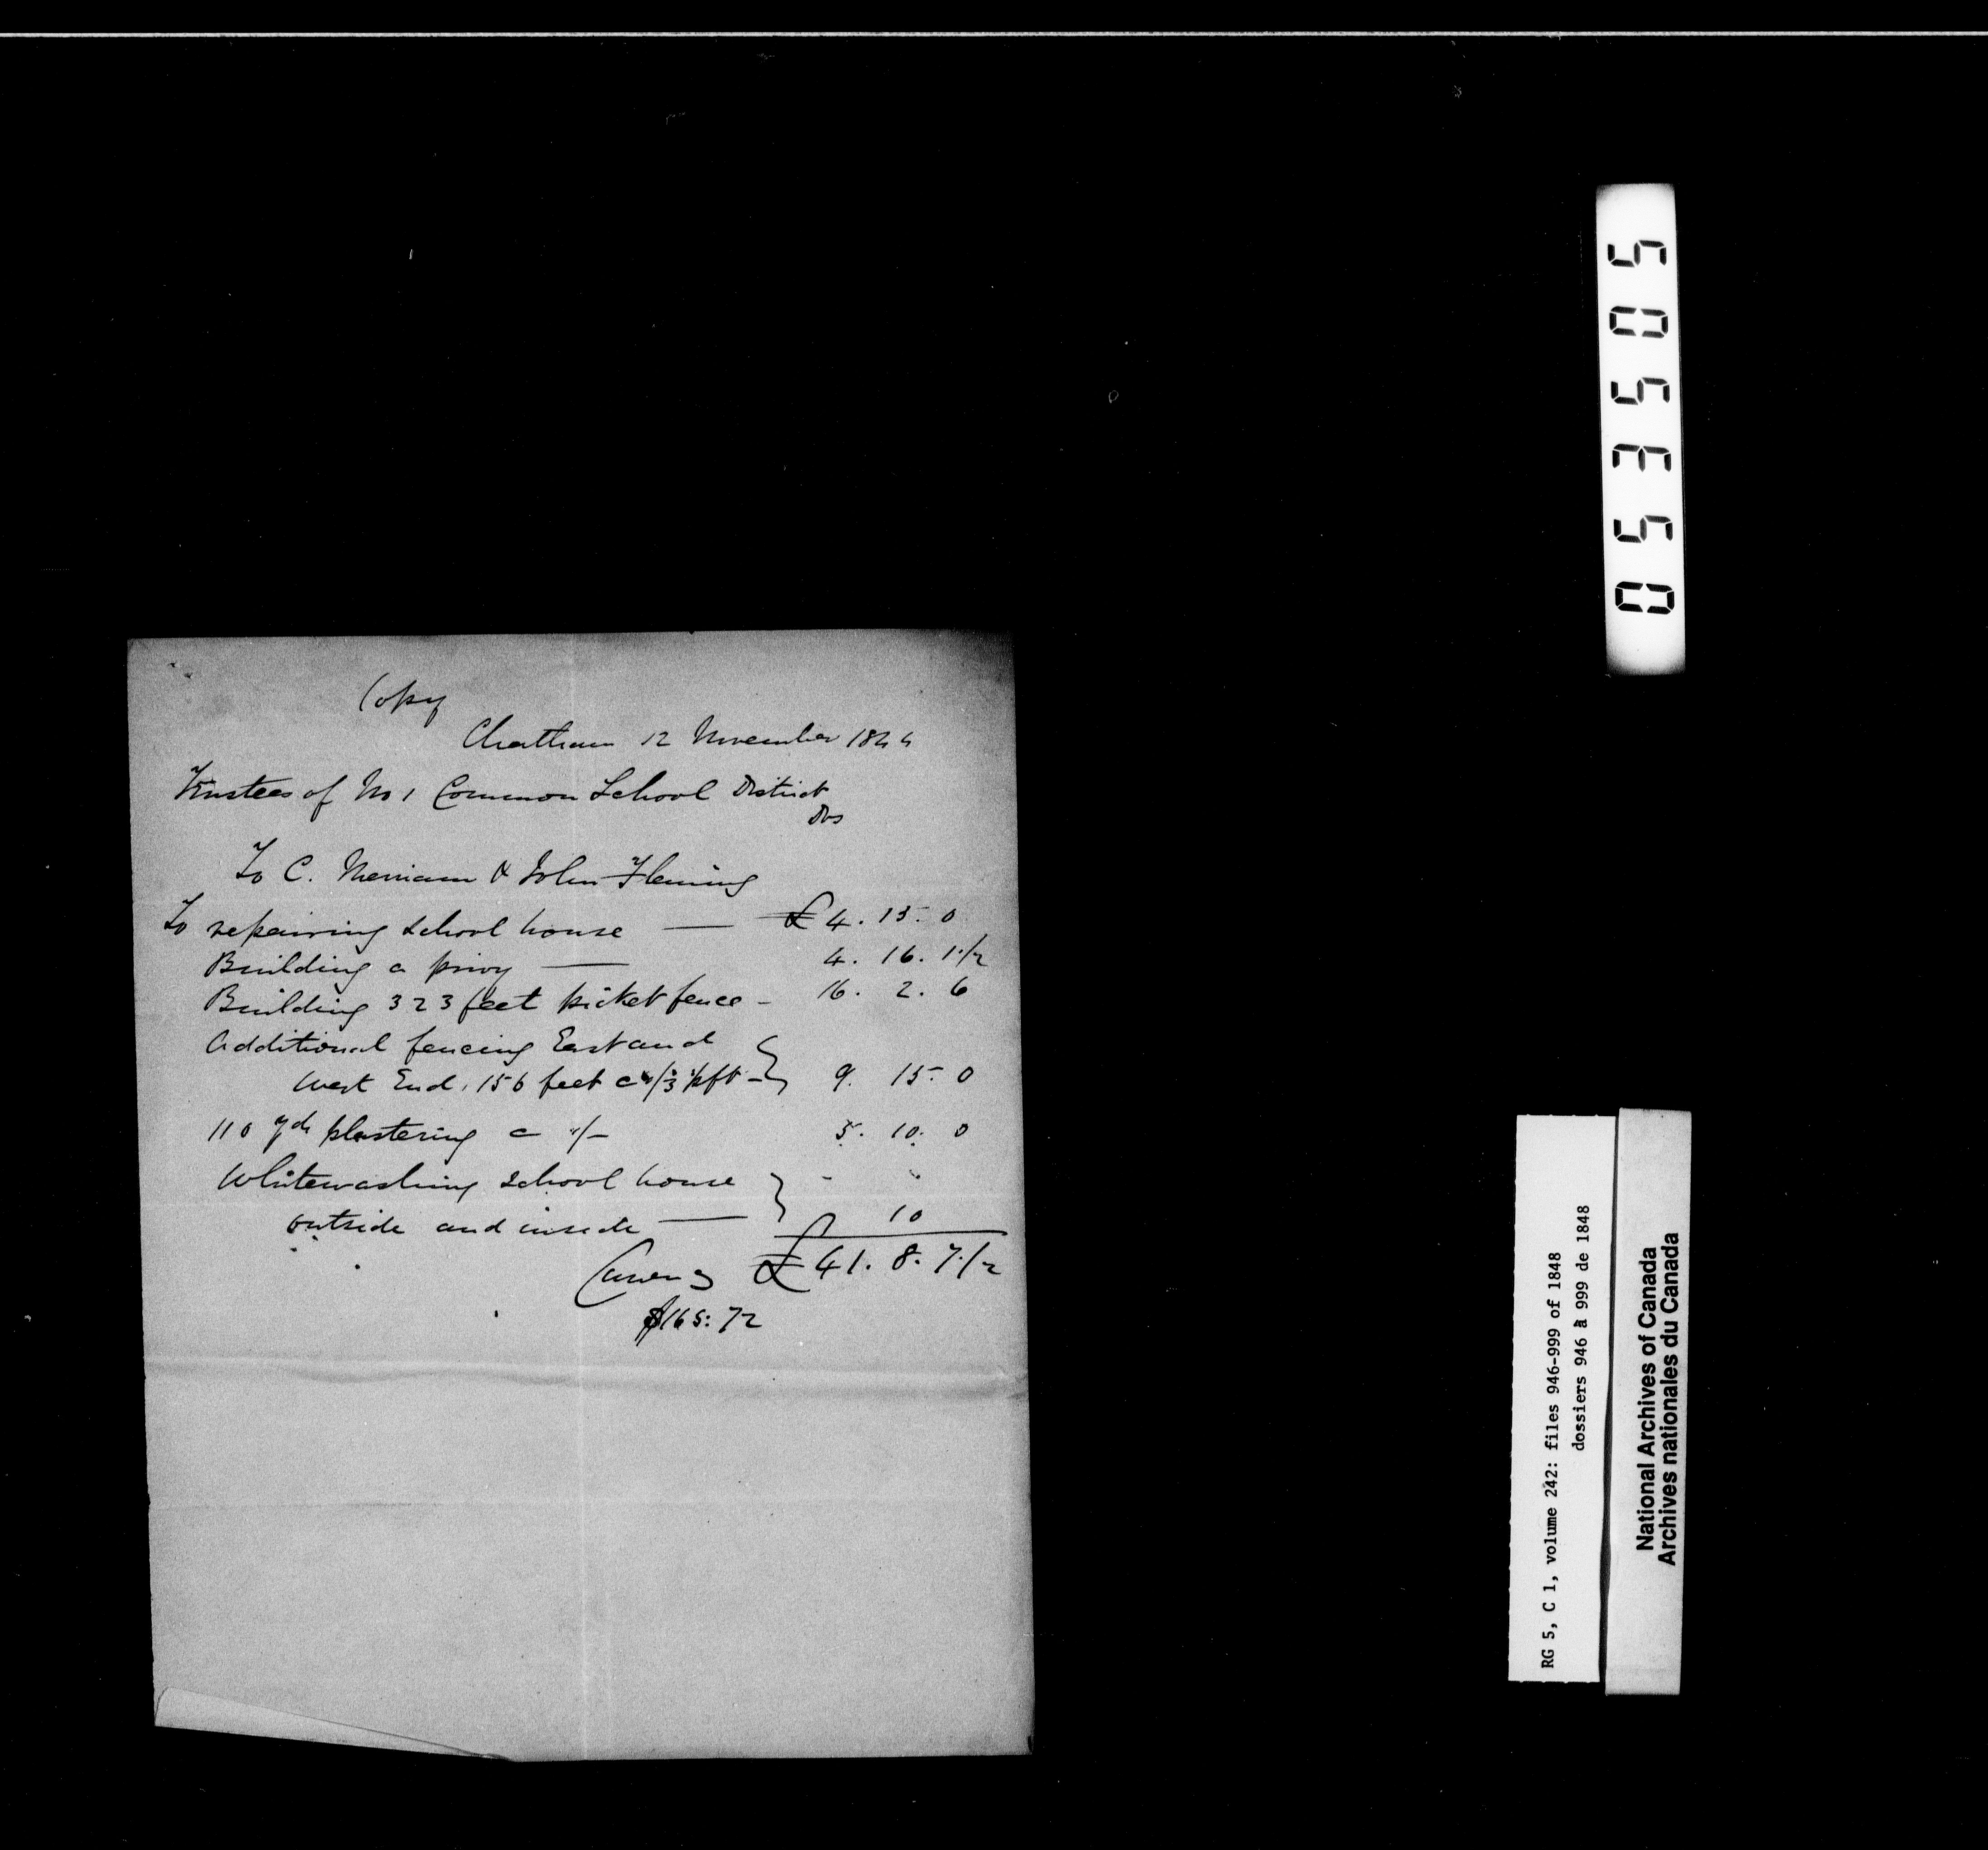 Copy
Chatham 12 November 1844
Trustees of No 1 Common School District
Drs
To C. Merriam & John Fleming
To repairing School house — £4. 15. 0
Building a privy — 4. 16. 1 1/2
Building 323 feet picket fence - 16. 2. 6
Additional fencing East and
West End. 156 feet a 1/3 pft - 9. 15. 0
110 yds plastering a 1/- 5. 10. 0
Whitewashing School house
outside and inside — 10
Currency £41. 8. 7 1/2
$165:72
053505
RG 5, C 1, volume 242: files 946-999 of 1848
dossiers 946 à 999 de 1848
National Archives of Canada
Archives nationales du Canada